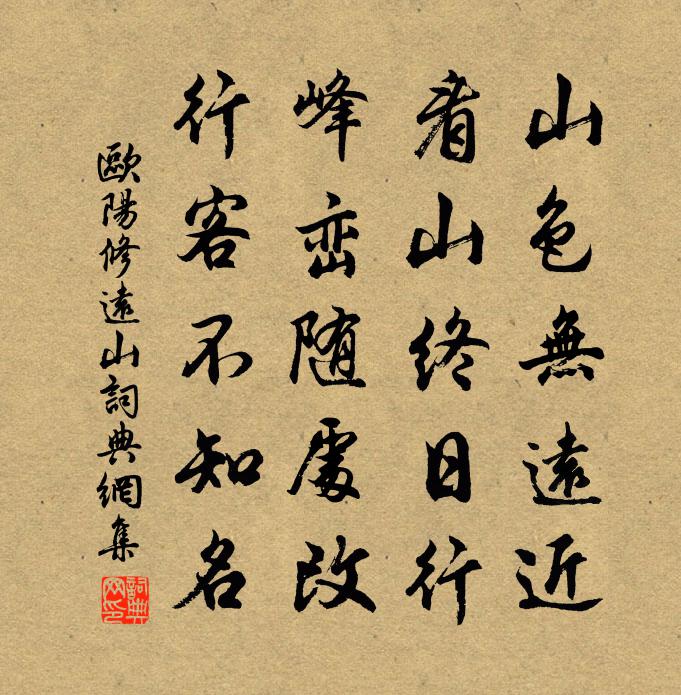 山色無遠近
看山終日行
峰峦随處改
行客不知名
歐陽修遠山詞典網集
詞典網印